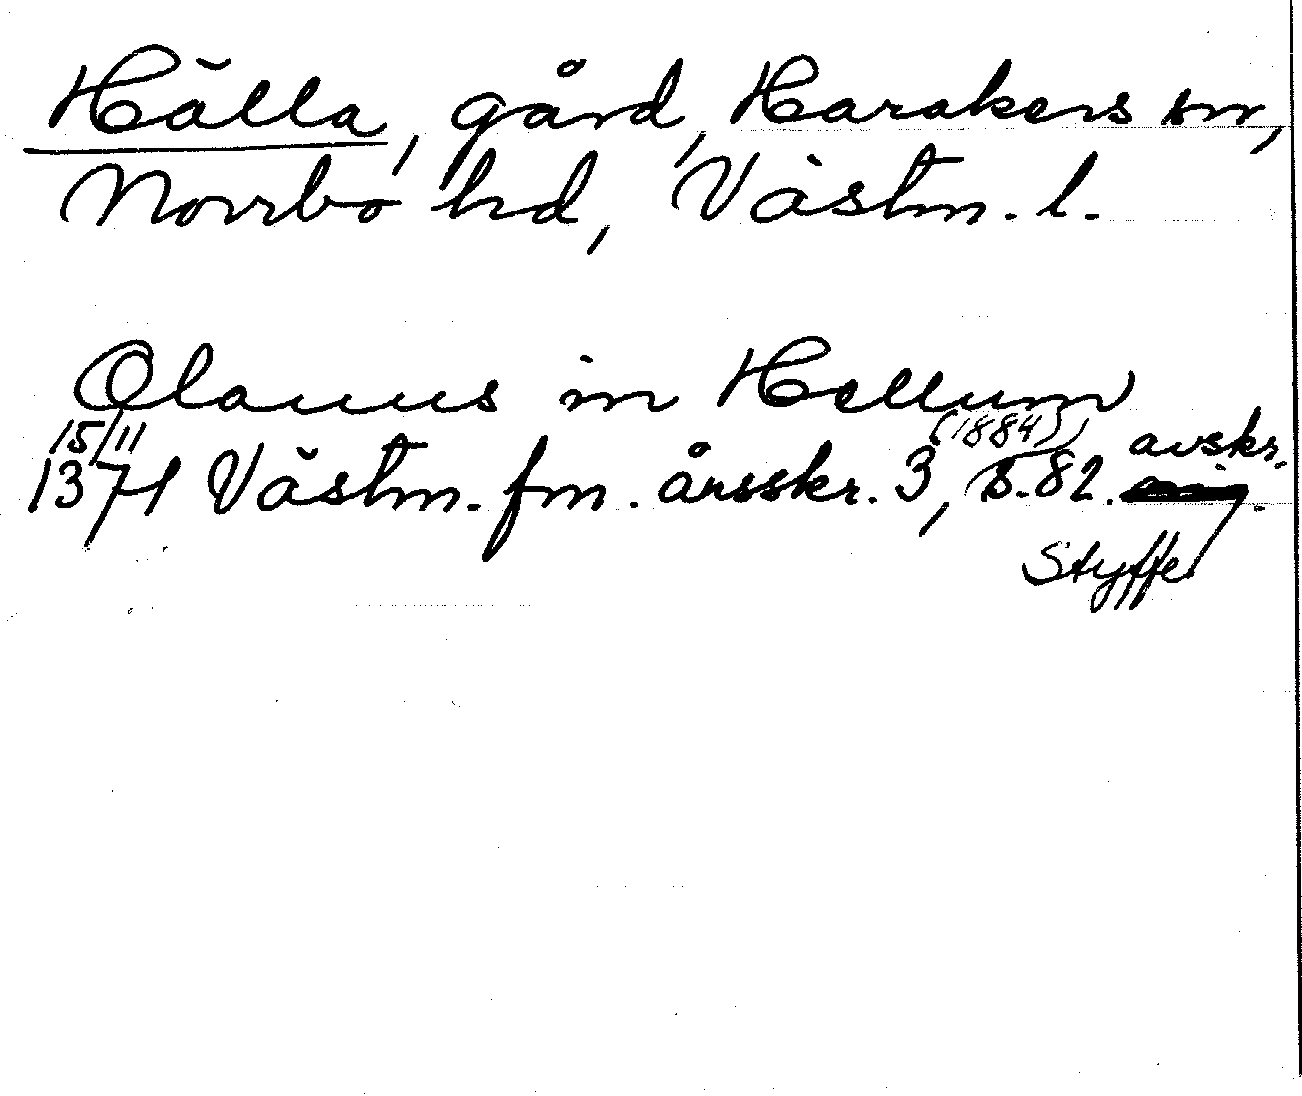 Hälla, gård, Harakers sn,
Norrbo hd, Västm. l.
Olauus in Hellum
15/11 1371 Västm. fm. årsskr. 3 (1884), s. 82. avskr.
Styffe